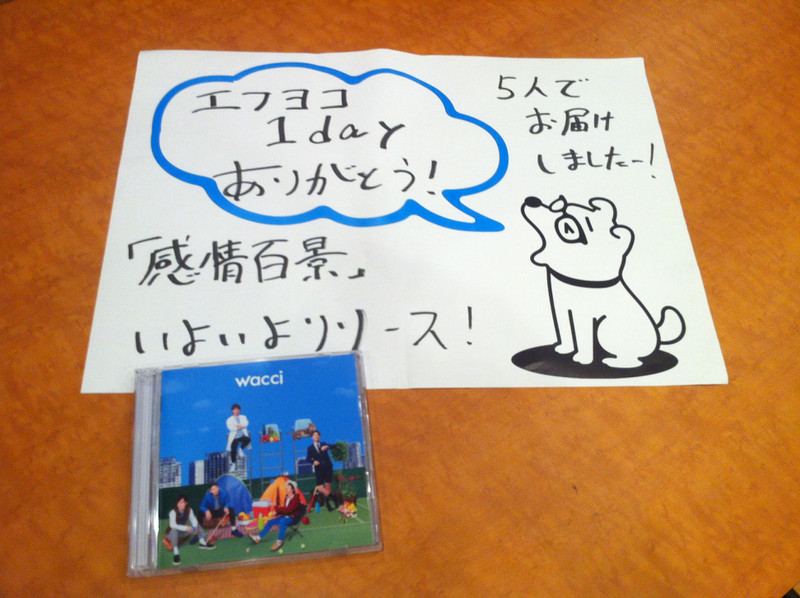 エフヨコ
1day
ありがとう!
5人で
お届け
しましたー!
「感情百景」
いよいよリリース!
wacci